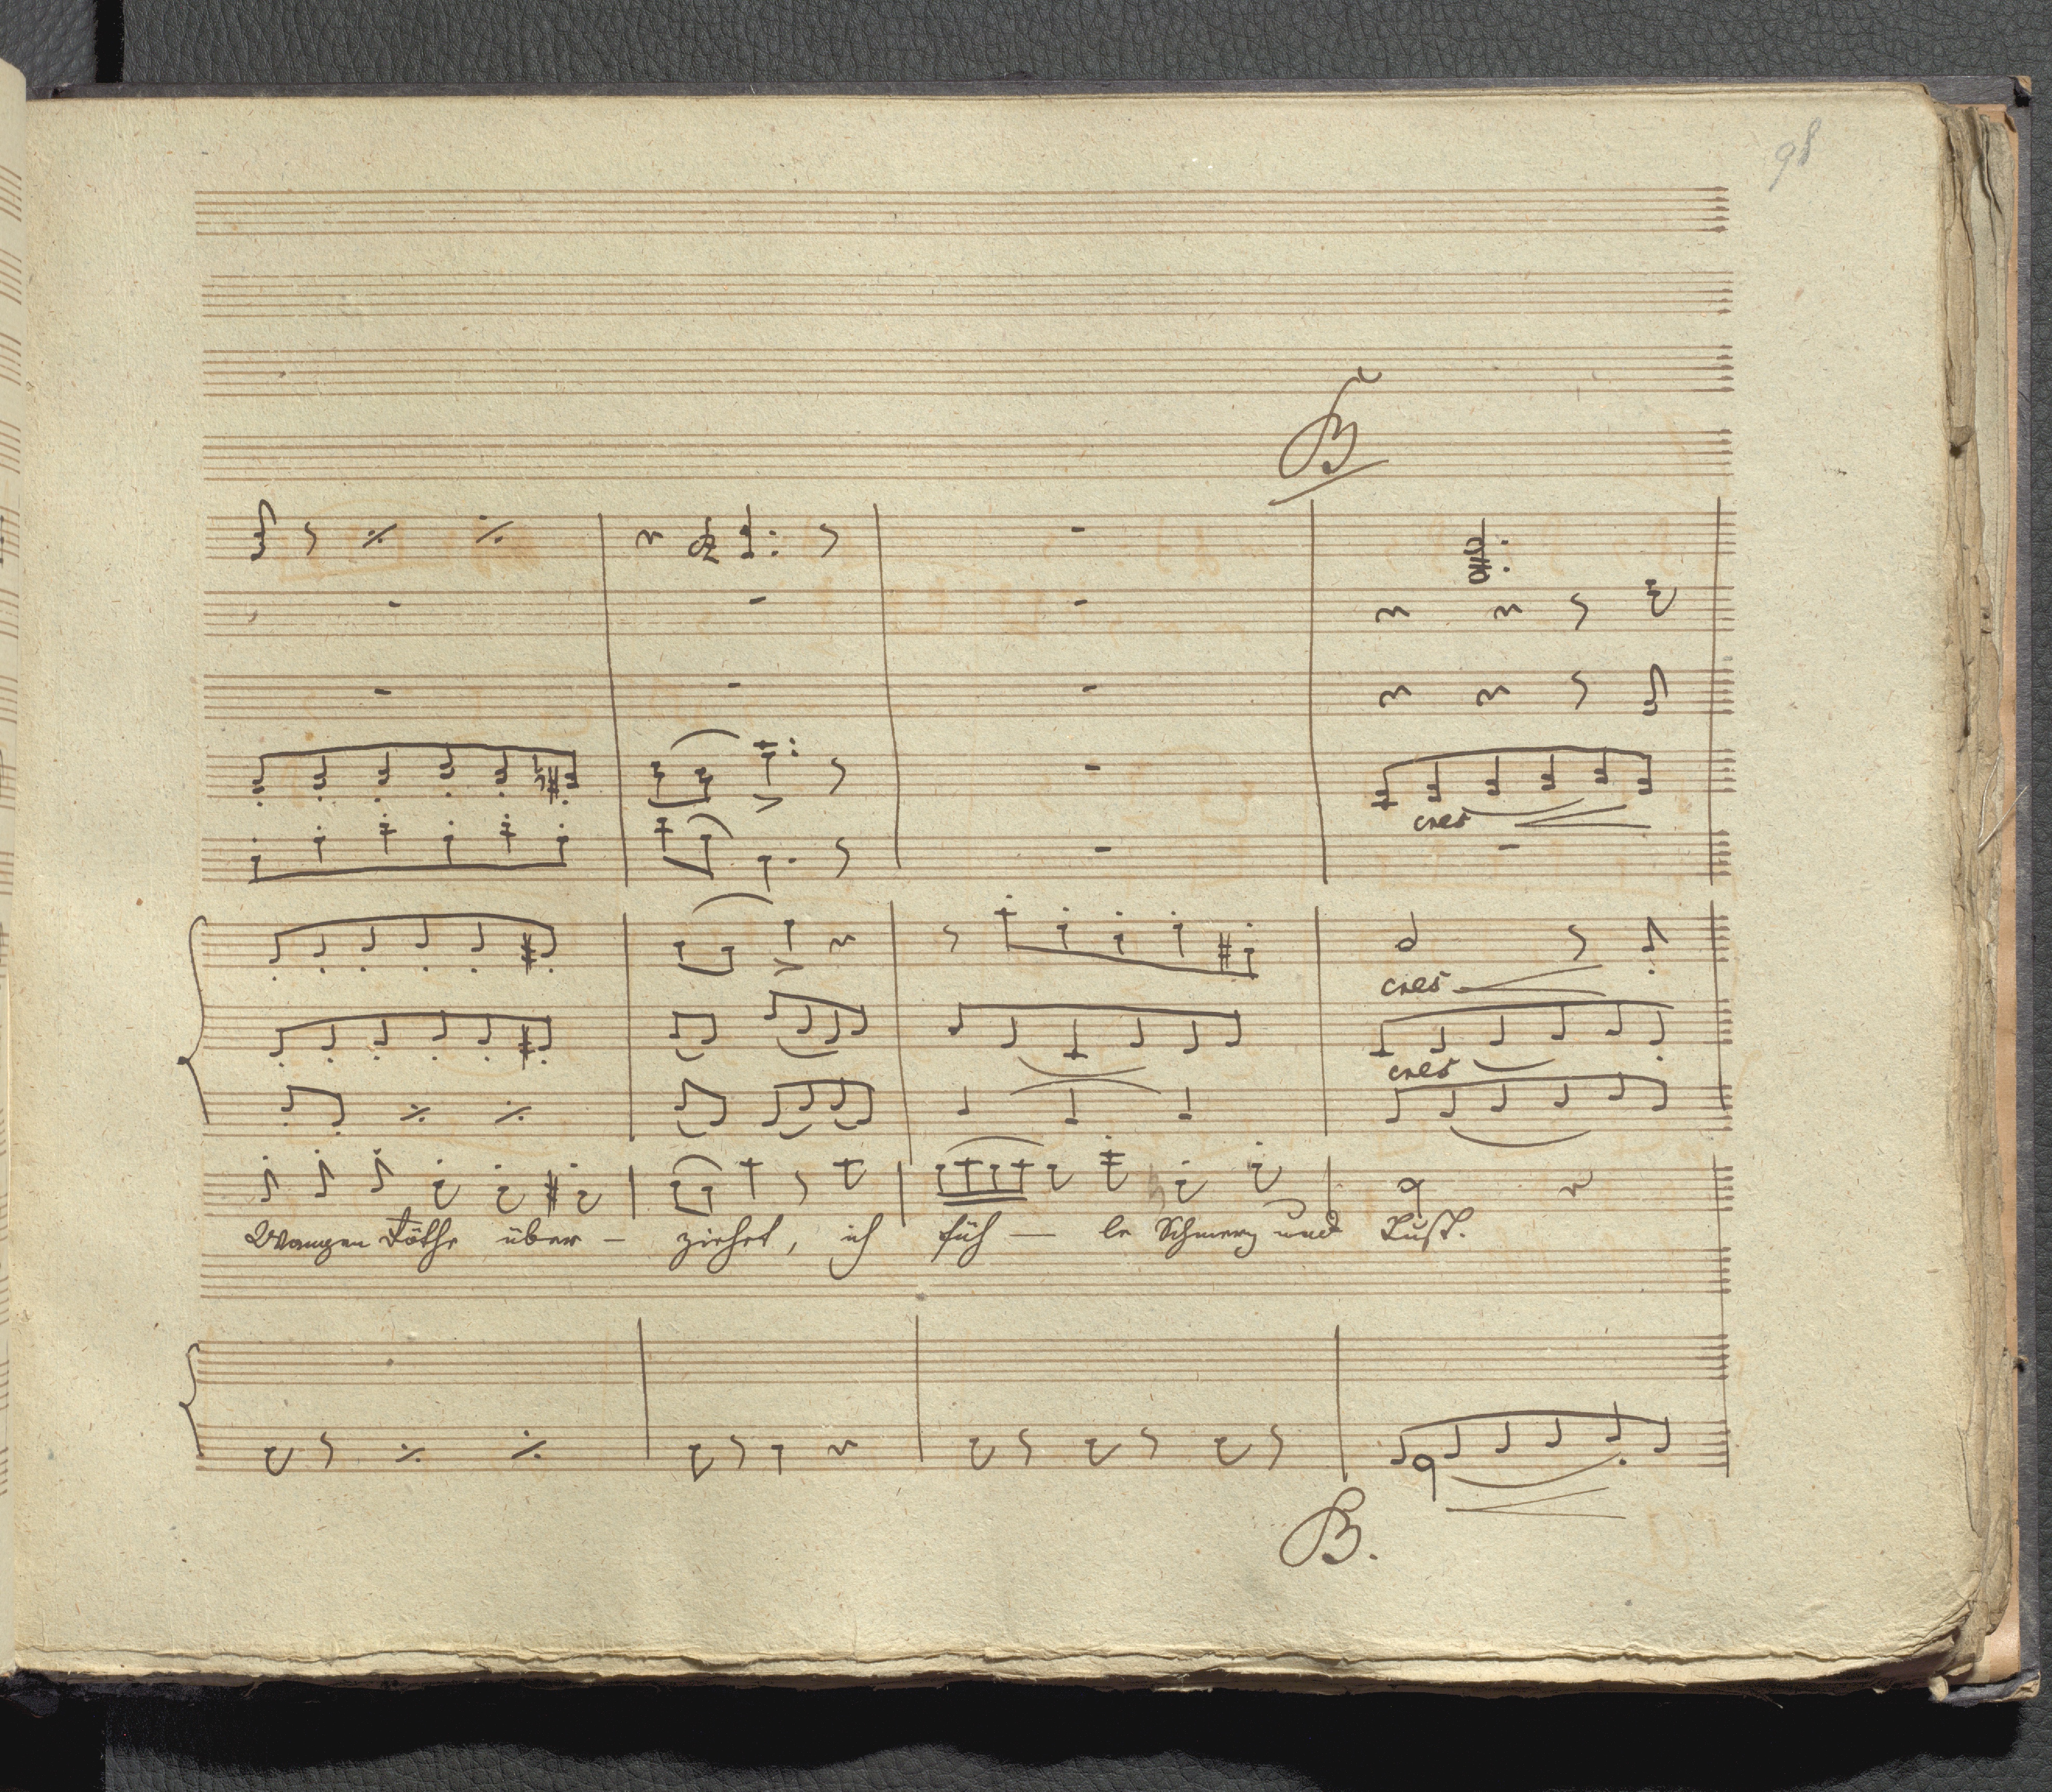 98
B
cres
cres
cres
Wangen Röthe über – ziehet, ich füh — le Schmerz und Lust.
B.